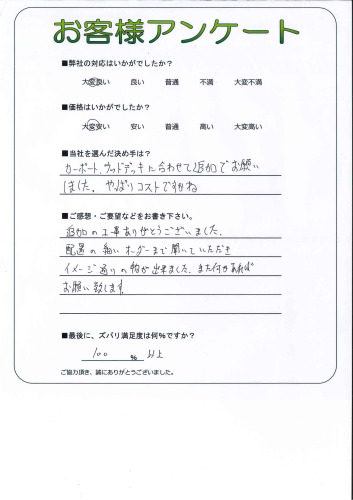 お客様アンケート
■弊社の対応はいかがでしたか?
大変良い 良い 普通 不満 大変不満
■価格はいかがでしたか?
大変安い 安い 普通 高い 大変高い
■当社を選んだ決め手は?
カーポート、ウッドデッキに合わせて追加でお願い
しました。やっぱりコストですかね
■ご感想・ご要望などをお書き下さい。
追加の工事ありがとうございました。
配置の細いオーダーまで聞いていただき
イメージ通りの物が出来ました。また何かあれば
お願い致します。
■最後に、ズバリ満足度は何%ですか?
100 % 以上
ご協力頂き、誠にありがとうございました。